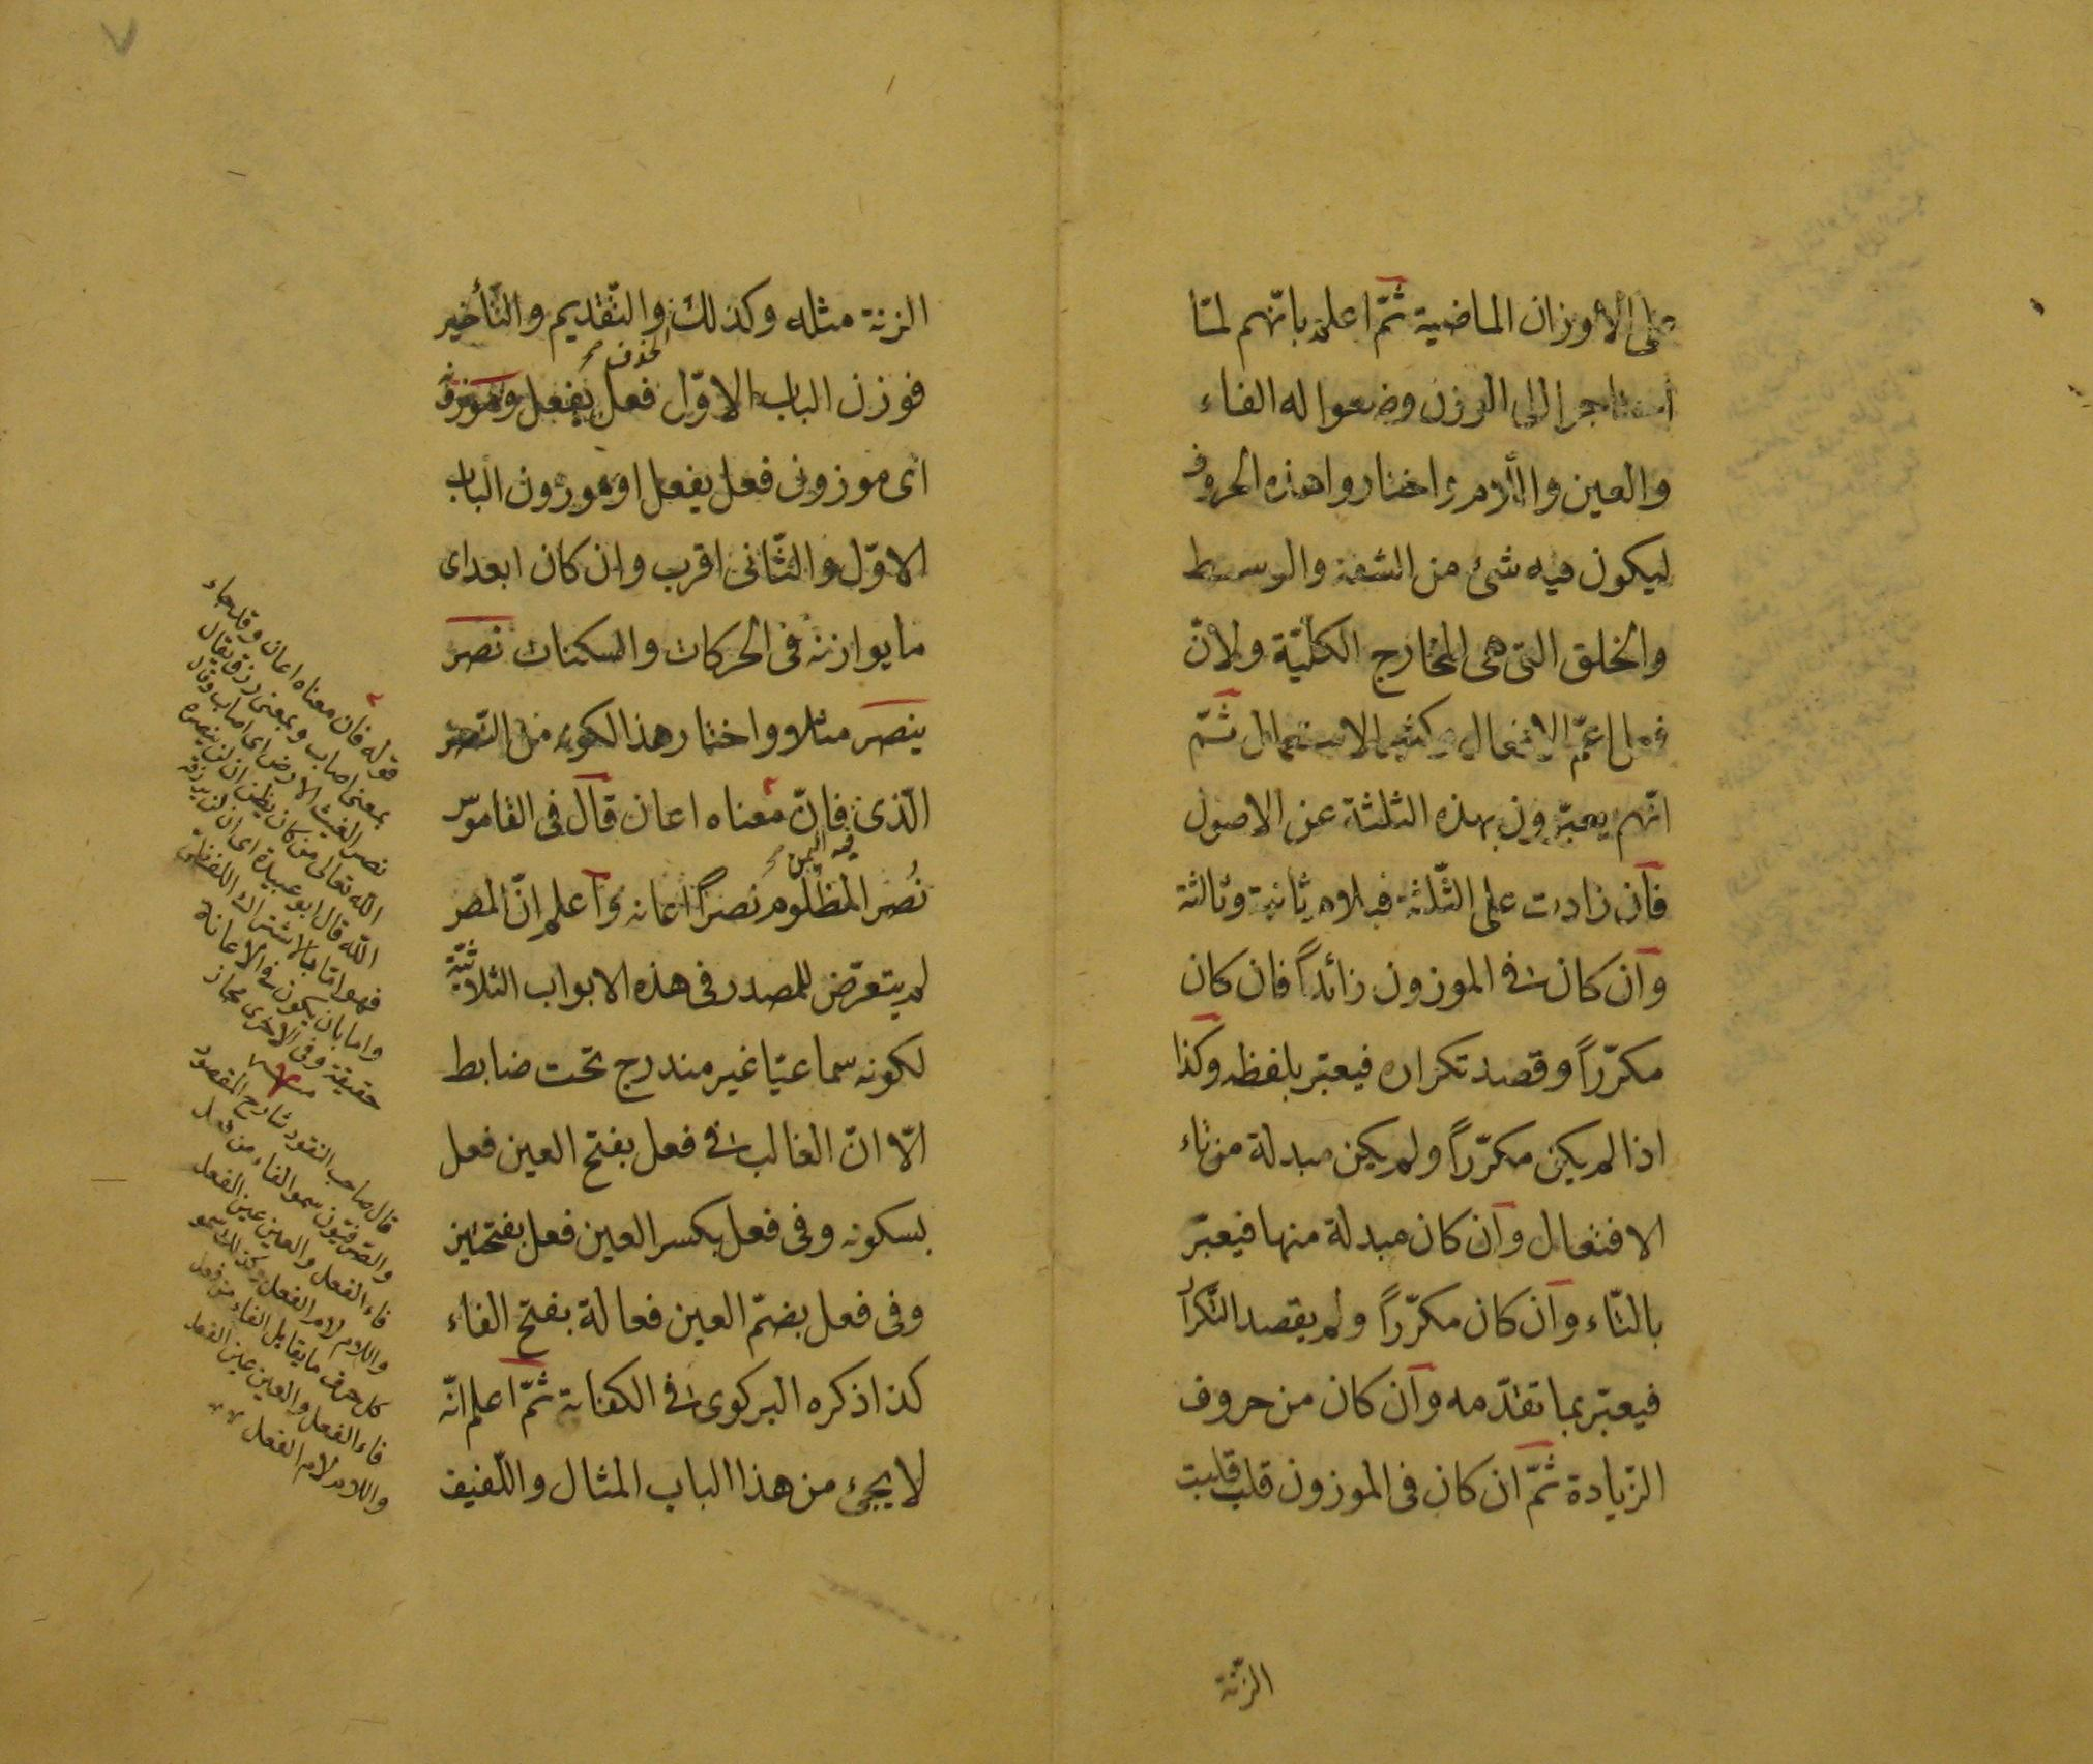 على الاوزان الماضية ثمّ اعلم بانّهم لمّا
احتاجوا الى الوزن وضعوا له الفاء
والعين واللام واختاروا هذه الحروف
ليكون فيه شئ من الشفة والوسط
والحلق التى هى المخارج الكليّة ولانّ
فعل اعمّ الافعال وكثير الاستعمال ثمّ
انّهم يعبّرون بهذه الثلثة عن الاصول
فان زادت على الثّلثة فبلام ثانية وثالثة
وان كان فى الموزون زائداً فان كان
مكرّراً وقصد تكراره فيعبّر بلفظه وكذا
اذا لم يكن مكرّراً ولم يكن مبدلة من تاء
الافتعال وان كان مبدلة منها فيعبّر
بالتّاء وان كان مكرّراً ولم يقصد التّكرار
فيعبّر بما تقدّمه وان كان من حروف
الزّيادة ثمّ ان كان فى الموزون قلب قلبت
الزّنة
الزنة مثله وكذلك والتّقديم والتّأخير
الحذف صح
فوزن الباب الاوّل فعل يفعل وموزونه
اى موزونى فعل يفعل او موزون الباب
الاوّل والثّانى اقرب وان كان ابعد اى
ما يوازنه فى الحركات والسكنات نصر
ينصر مثلا واختار هذا لكونه من النّصر
الّذى فانّ معناه اعان قال فى القاموس
نُصر المظلوم نصراً اعانه واعلم انّ المصر
لم يتعرّض للمصدر فى هذه الابواب الثلاثيّة
لكونه سماعيّا غير مندرج تحت ضابط
الّا انّ الغالب فى فعل بفتح العين فعل
بسكونه وفى فعل بكسر العين فعل بفتحتين
وفى فعل بضمّ العين فعالة بفتح الفاء
كذا ذكره البركوى فى الكفاية ثمّ اعلم انّه
لا يجئ من هذا الباب المثال واللّفيف
قوله فان معناه اعان وقد جاء
بمعنى اصاب وبمعنى رزق يقال
نصر الغيث الارض اى اصاب وقال
الله تعالى من كان يظن ان لن ينصره
الله قال ابو عبيدة اى ان لن يرزقه
فهو امّا بالاشتراك اللفظىّ
واما بان يكون فى الاعانة
حقيقة وفى الاخرى مجاز
قال صاحب النقود شارح المقصود
والصّرفيّون سمو الفاء من فعل
فاء الفعل والعين عين الفعل
واللام لام الفعل وكذلك سمو
كل حرف ما يقابل الفاء من فعل
فاء الفعل والعين عين الفعل
واللام لام الفعل